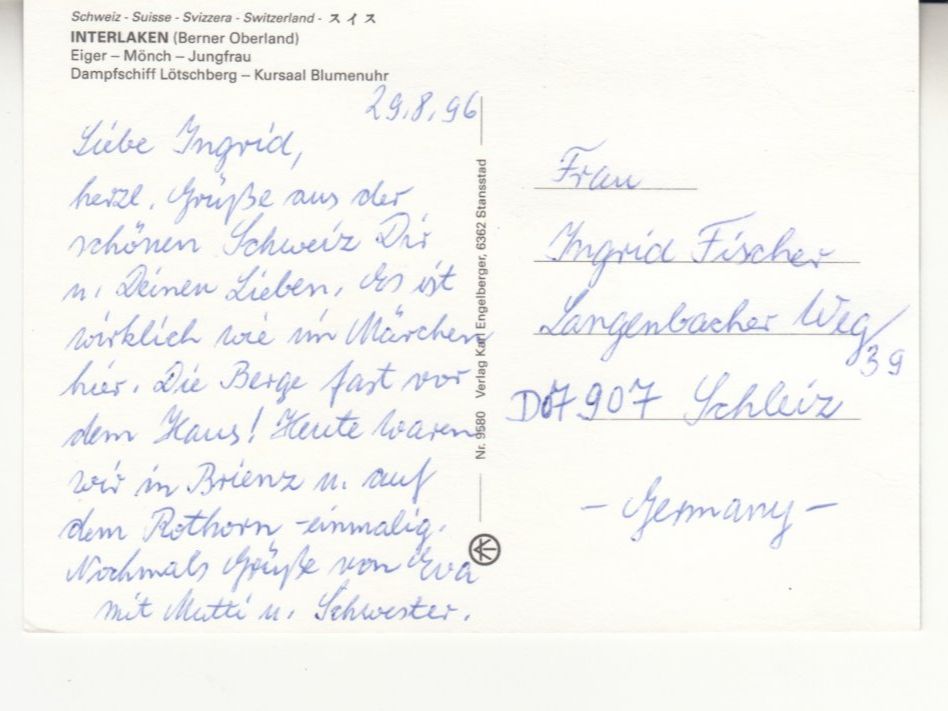 Schweiz - Suisse - Svizzera - Switzerland - スイス
INTERLAKEN (Berner Oberland)
Eiger – Mönch – Jungfrau
Dampfschiff Lötschberg – Kursaal Blumenuhr
29.8.96
Liebe Ingrid,
herzl. Grüße aus der
schönen Schweiz Dir
u. Deinen Lieben. Es ist
wirklich wie im Märchen
hier. Die Berge fast vor
dem Haus! Heute waren
wir in Brienz u. auf
dem Rothorn - einmalig.
Nochmals Grüße von Eva
mit Mutti u. Schwester.
Nr. 9580 Verlag Karl Engelberger, 6362 Stansstad
Frau
Ingrid Fischer
Langenbacher Weg
39
D07907 Schleiz
- Germany -